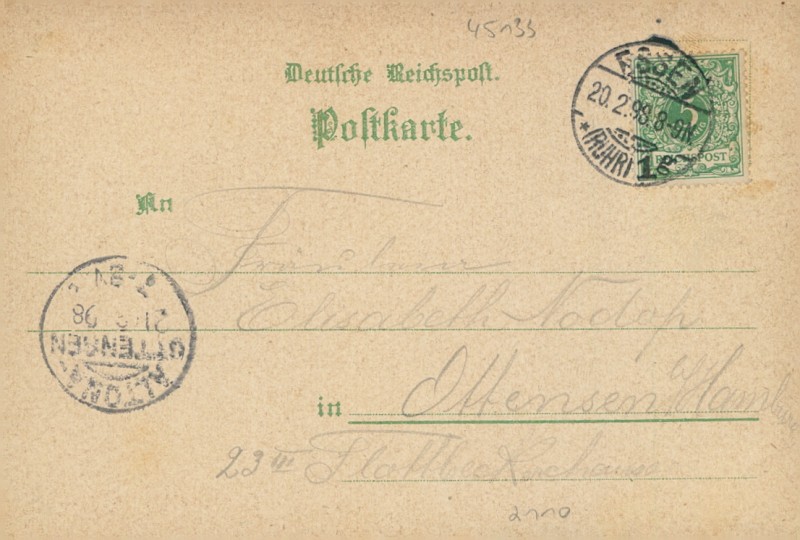 45133
Deutsche Reichspost.
Postkarte.
ESSEN
20.2.98.8-9N.
*(RUHR)1g
5
REICHSPOST
An
Fräulein
Elisabeth Nodop
in Ottensen b/Hamburg
23 III Flottbecker
ALTONA
OTTENSEN
98
7-8V
2110